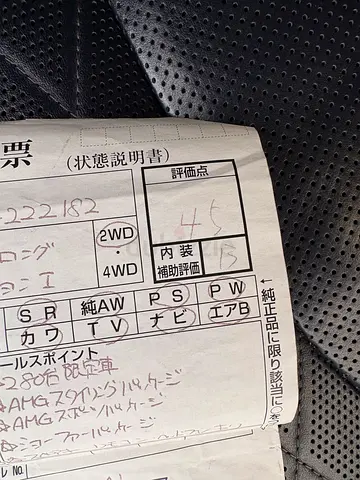 票 (状態説明書)
評価点
4.5
222182
ロング
2WD
・
4WD
内装
補助評価
B
SR 純AW PS PW
カワ TV ナビ エアB
←純正品に限り該当に○を
ールスポイント
280台限定車
☆AMGスタイリングパッケージ
☆AMGスポーツパッケージ
☆ショーファーパッケージ
レNo.